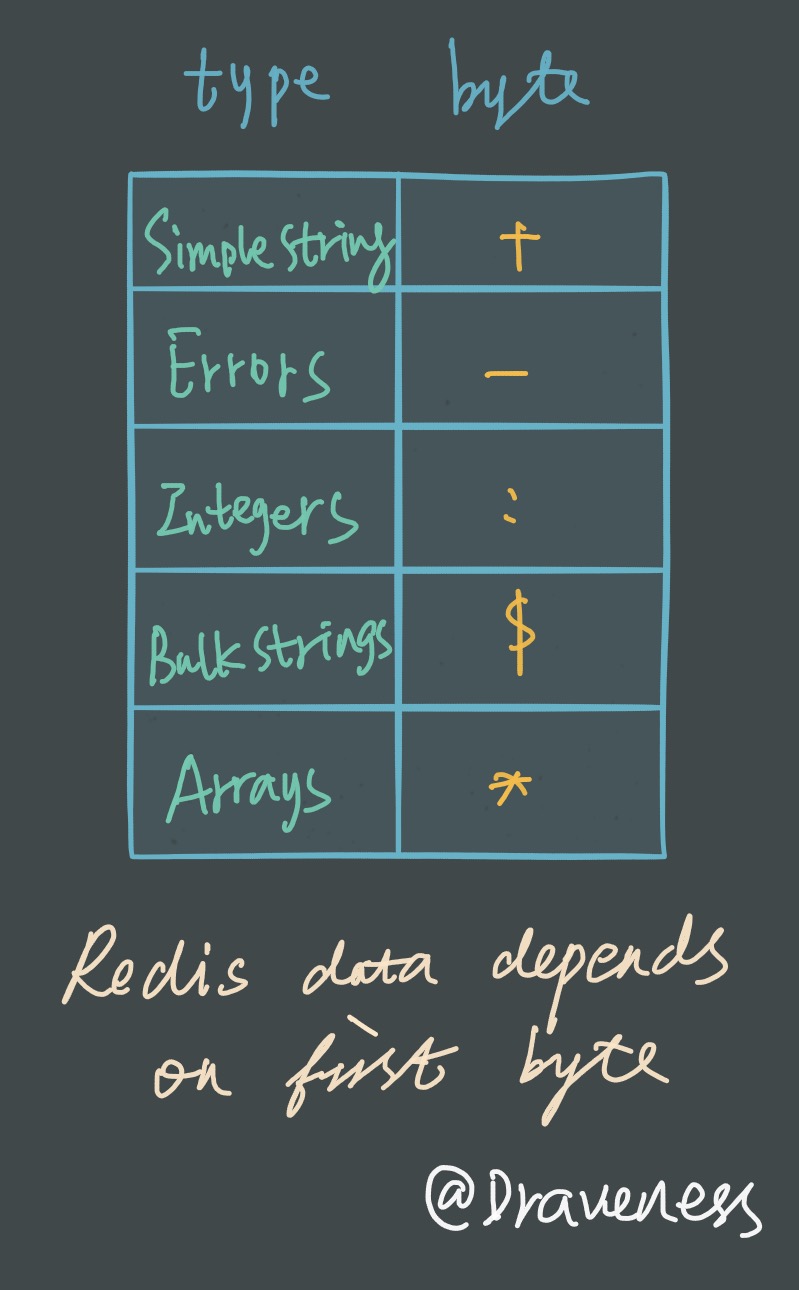 type byte
Simple string +
Errors -
Integers :
Bulk strings $
Arrays *
Redis data depends
on first byte
@Draveness